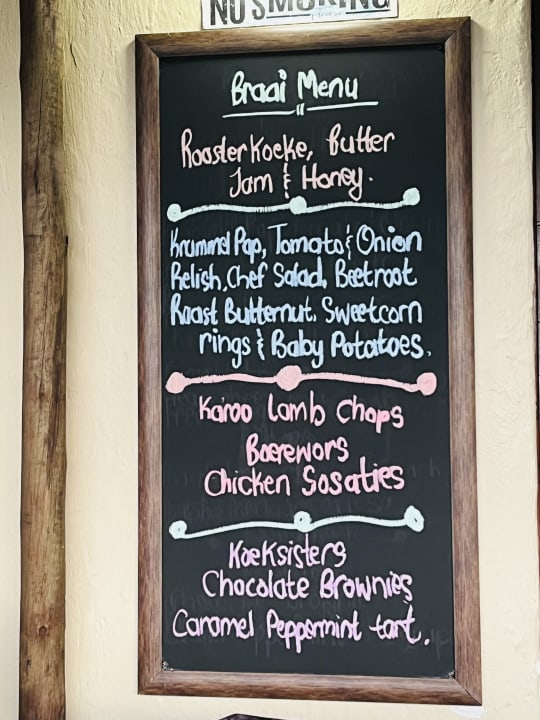 NO SMOKING
Please
Braai Menu
Roosterkoeke, Butter
Jam & Honey.
Krummel Pap, Tomato & Onion
Relish, Chef Salad, Beetroot
Roast Butternut, Sweetcorn
rings & Baby Potatoes.
Karoo Lamb Chops
Boerewors
Chicken Sosaties
Koeksisters
Chocolate Brownies
Caramel Peppermint tart.